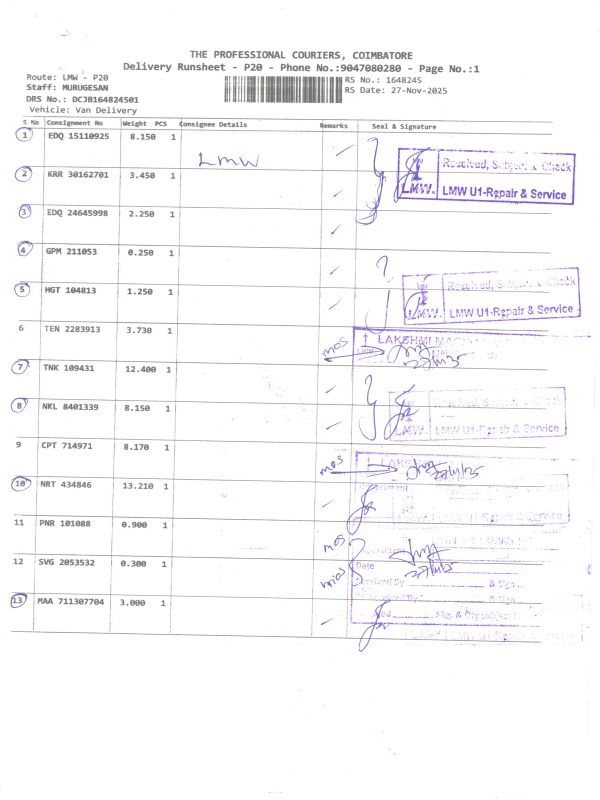 THE PROFESSIONAL COURIERS, COIMBATORE
Delivery Runsheet - P20 - Phone No.:9047080280 - Page No.:1
Route: LMW - P20
RS No.: 1648245
Staff: MURUGESAN
RS Date: 27-Nov-2025
DRS No.: DCJB164824501
Vehicle: Van Delivery
S No Consignment No Weight PCS Consignee Details Remarks Seal & Signature
1 EDQ 15110925 8.150 1
LMW
Received, Subject to Check
LMW. LMW U1-Repair & Service
2 KRR 30162701 3.450 1
3 EDQ 24645998 2.250 1
4 GPM 211053 0.250 1
5 HGT 104813 1.250 1
Received, Subject to Check
LMW. LMW U1-Repair & Service
6 TEN 2283913 3.730 1 mos
LAKSHMI
7 TNK 109431 12.400 1
8 NKL 8401339 8.150 1
LMW U1-Repair & Service
9 CPT 714971 8.170 1 mos
10 NRT 434846 13.210 1
11 PNR 101088 0.900 1 mos
12 SVG 2053532 0.300 1
Date
13 MAA 711307704 3.000 1